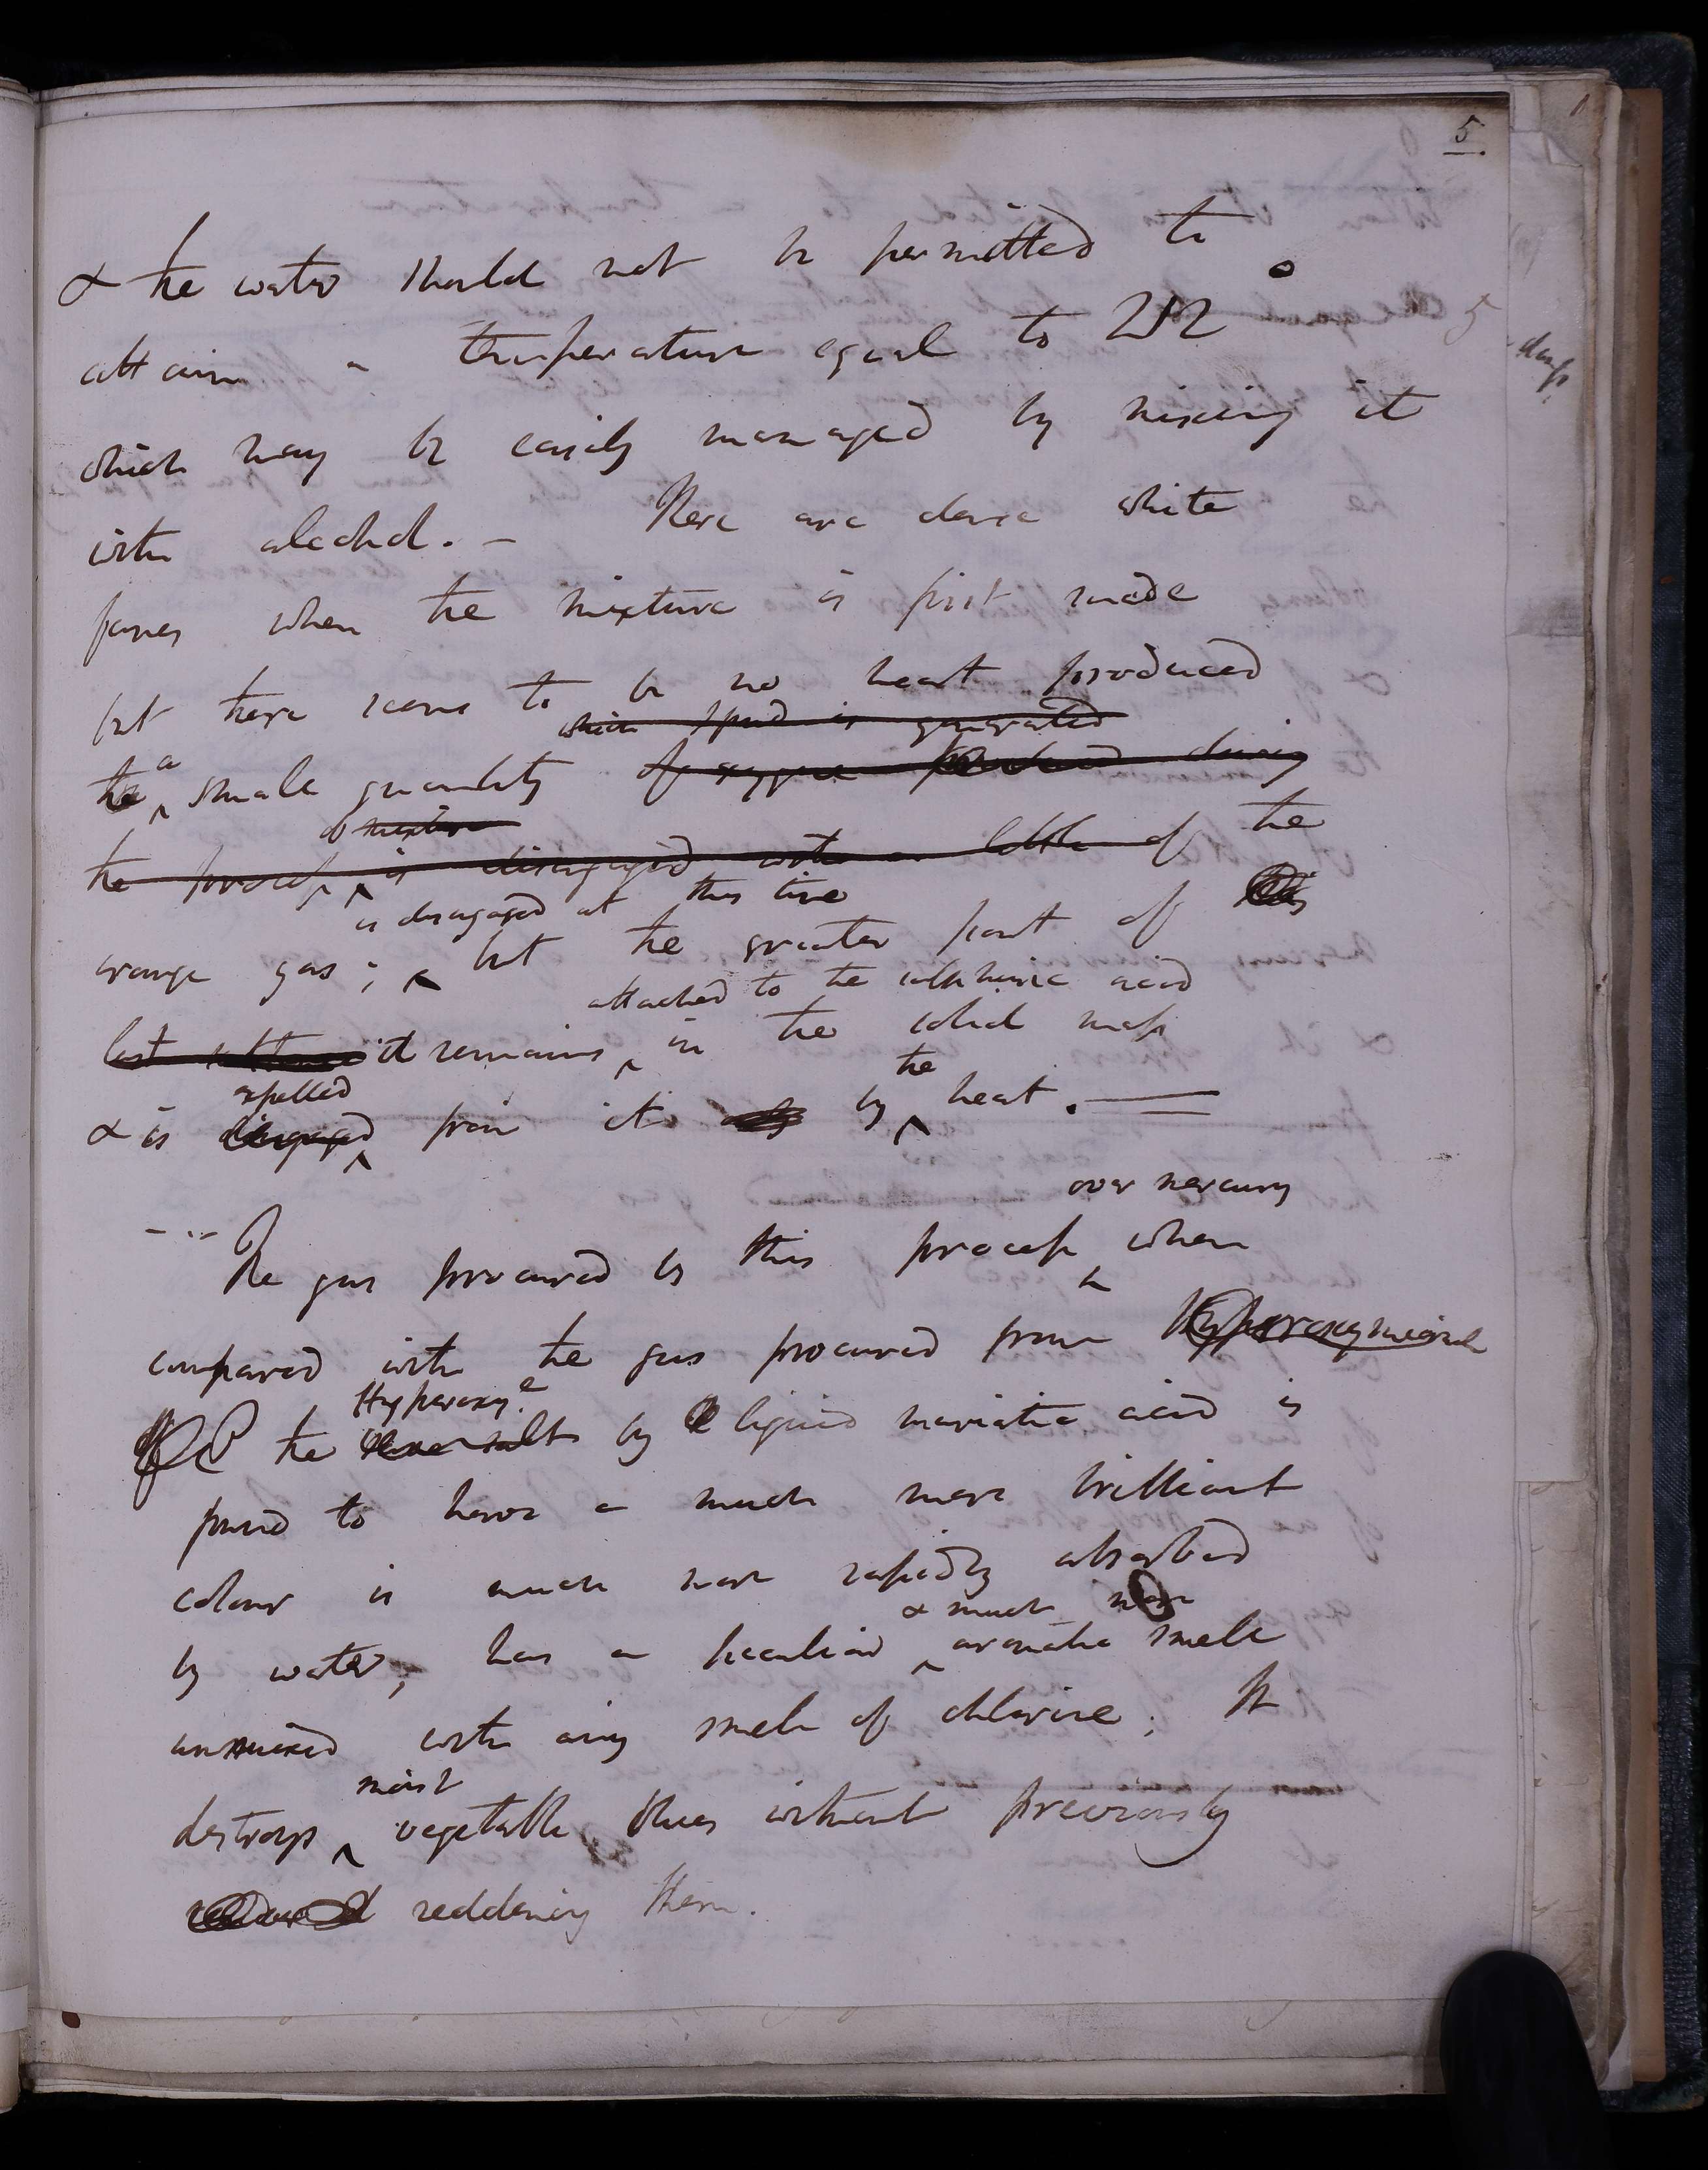 5
& the water should not be permitted to
attain a temperature equal to 212°
which may be easily managed by mixing it
with alcohol. – There are dense white
fumes when the mixture is first made
but there seems to be no heat produced
which fluid is generated
the a small quantity of oxygene produced during
of mixture
the process is disengaged with a little of the
is disengaged at this time
orange gas; but the greater part of this
attached to the sulphuric acid
it remains in the solid mass
expelled the
& is disengaged from it only by heat. –
over mercury
The gas procured by this process when
compared with the gas procured from Hyperoxymuriate
Hyperoxy.e
the same salt by liquid muriatic acid is
found to have a much more brilliant
colour is much more rapidly absorbed
& much more
by water, has a peculiar aromatic smell
unmixed with any smell of chlorine; It
moist
destroys vegetable blues without previously
reddening them.